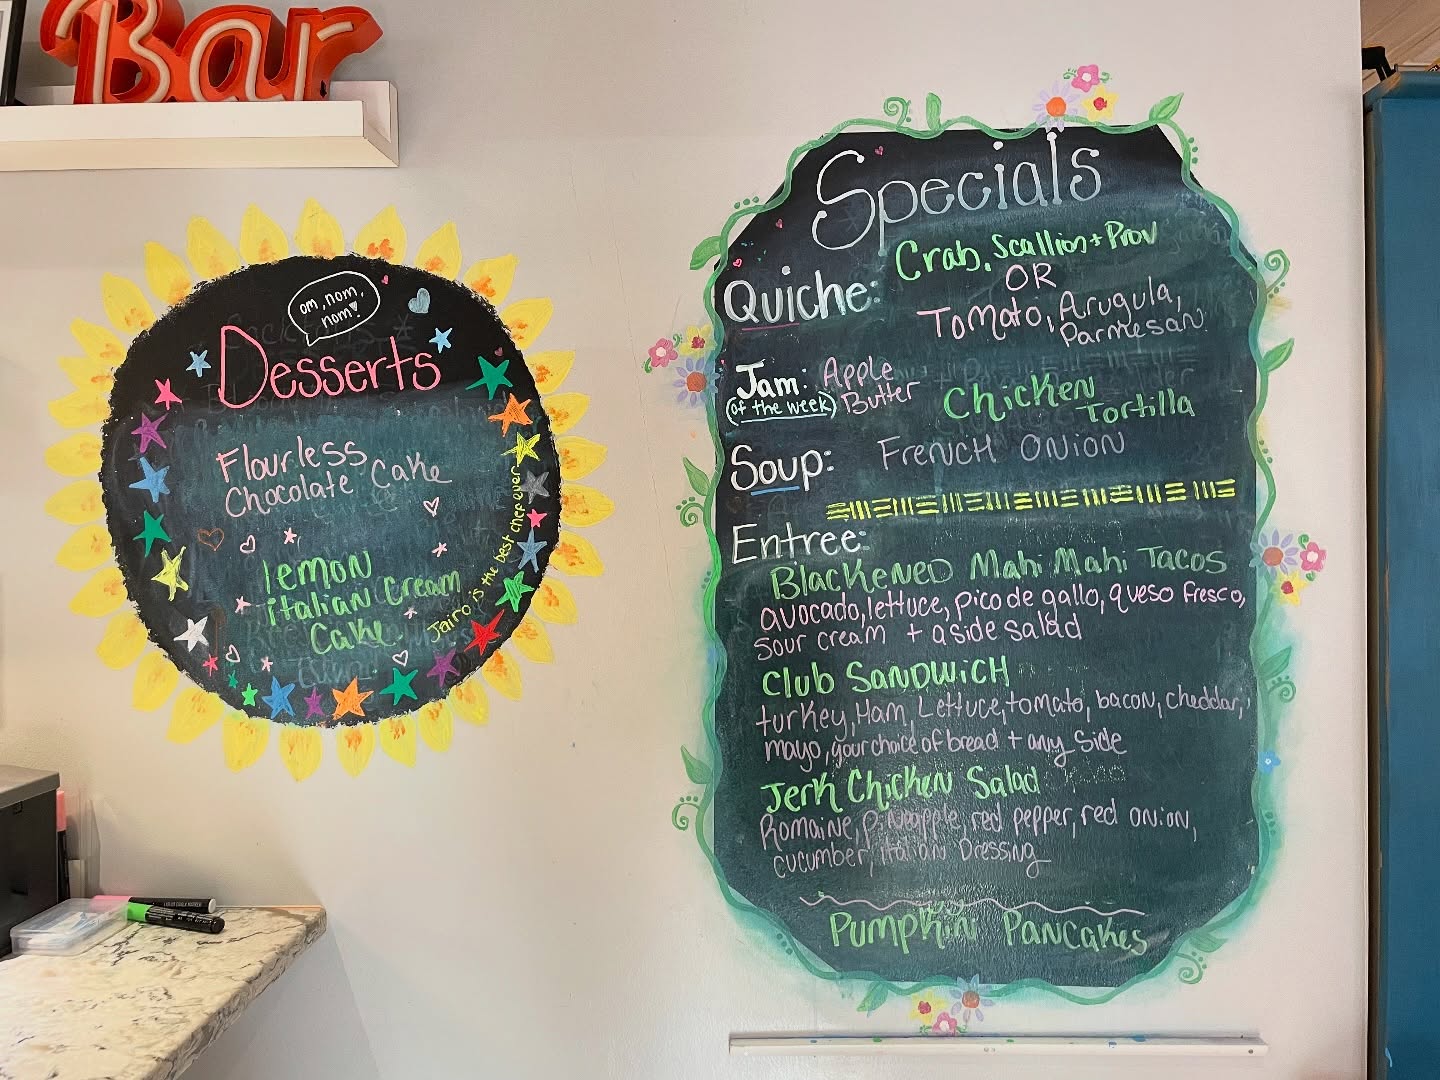 Bar
om, nom,
nom!
Desserts
Flourless
Chocolate Cake
lemon
italian Cream
Cake
Jairo is the best chef ever
Specials
Quiche: Crab, Scallion + Prov
OR
Tomato, Arugula,
Parmesan
Jam: Apple
(of the week) Butter
Chicken
Tortilla
Soup: French Onion
Entree:
Blackened Mahi Mahi Tacos
avocado, lettuce, pico de gallo, queso fresco,
sour cream + a side salad
Club Sandwich
turkey, Ham, Lettuce, tomato, bacon, cheddar,
mayo, your choice of bread + any side
Jerk Chicken Salad
Romaine, pineapple, red pepper, red onion,
cucumber, italian Dressing
Pumpkin Pancakes